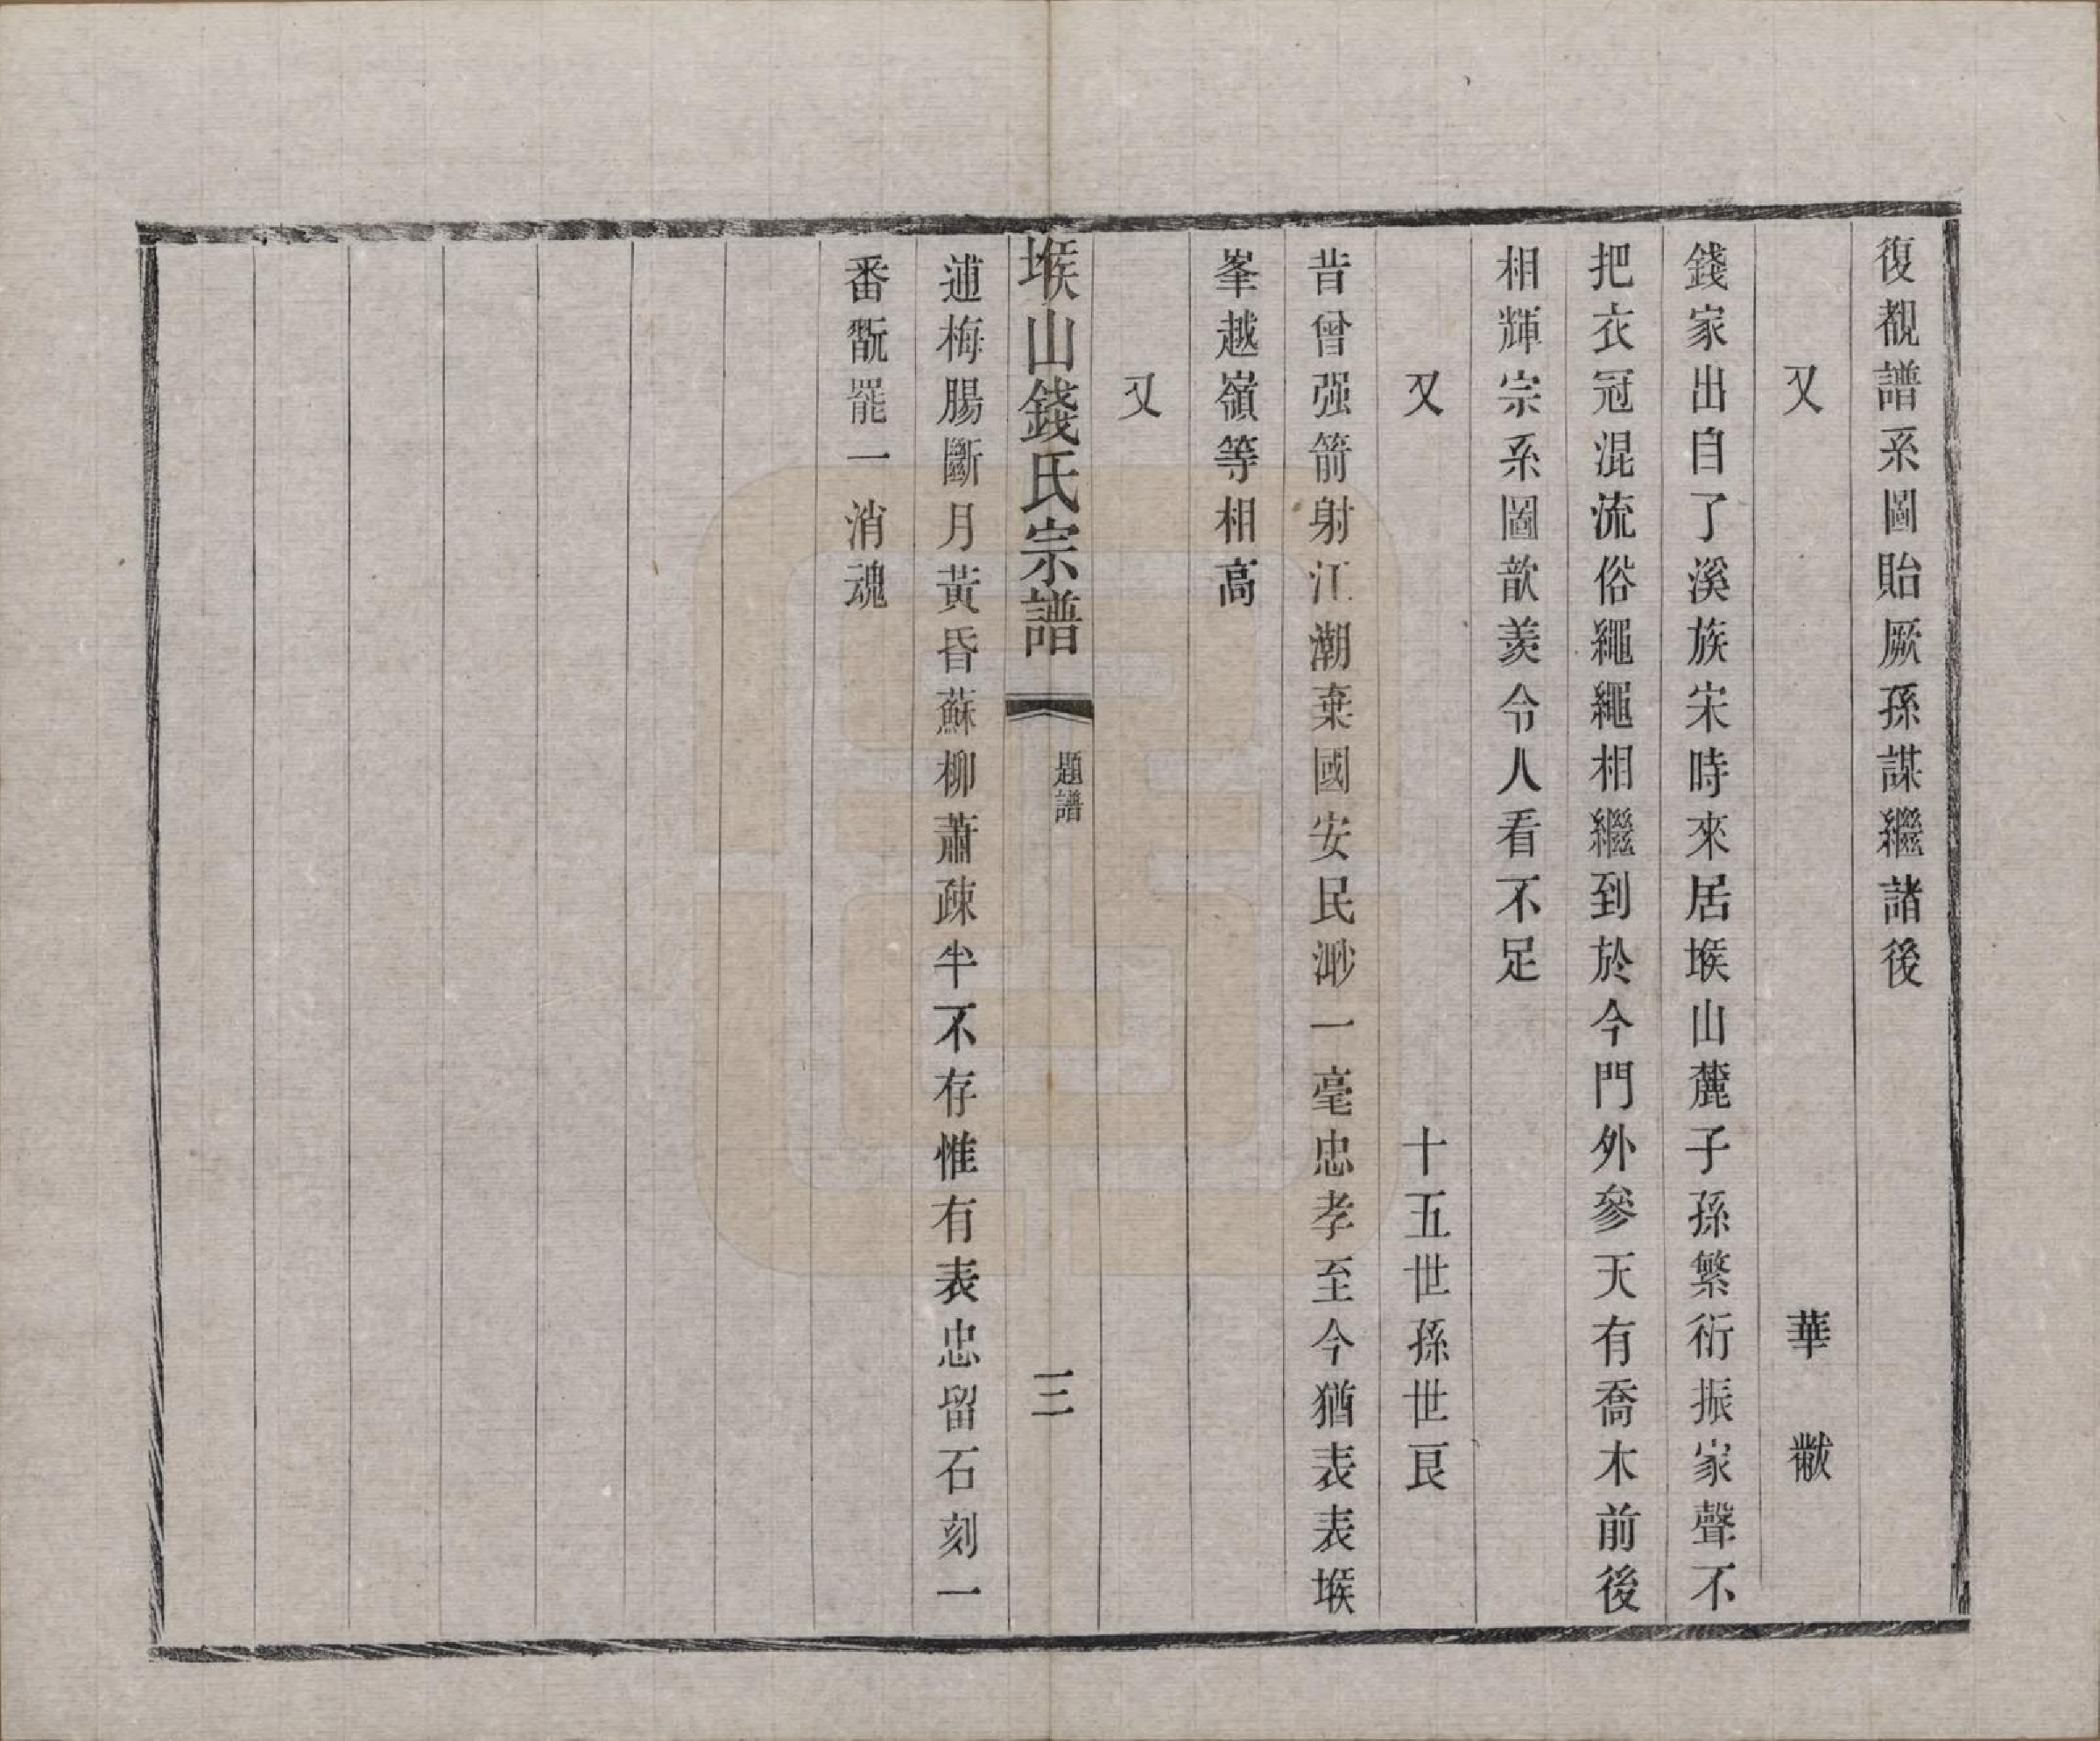 復覩譜系圖貽厥孫謀繼諸後
又　華黻
錢家出自了溪族宋時來居堠山麓子孫繁衍振家聲不
把衣冠混流俗繩繩相繼到於今門外參天有喬木前後
相輝宗系圖歆羨令人看不足
又　十五世孫世艮
昔曾强箭射江潮棄國安民渺一毫忠孝至今猶表表堠
峯越嶺等相高
又
堠山錢氏宗譜　題譜　三
逋梅腸斷月黃昏蘇柳蕭疎半不存惟有表忠留石刻一
番翫罷一消魂